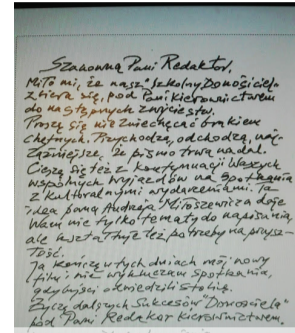 Szanowna Pani Redaktor,
Miło mi, że nasz "Szkolny Donosiciel"
zbiera się, pod Pani kierownictwem
do następnych zwycięstw.
Proszę się nie zniechęcać brakiem
chętnych. Przychodzą, odchodzą, naj-
ważniejsze, że pismo trwa nadal.
Cieszę się też z kontynuacji Waszych
wspólnych wyjazdów na spotkania
z kulturalnymi wydarzeniami. Ta
idea pana Andrzeja Miłoszewicza daje
Wam nie tylko tematy do napisania,
ale kształtuje też potrzeby na przysz-
łość.
Ja kończę w tych dniach mój nowy
film i nie wykluczam spotkania,
gdybyście odwiedzili stolicę.
Życzę dalszych sukcesów "Donosiciela"
pod Pani Redaktor kierownictwem.